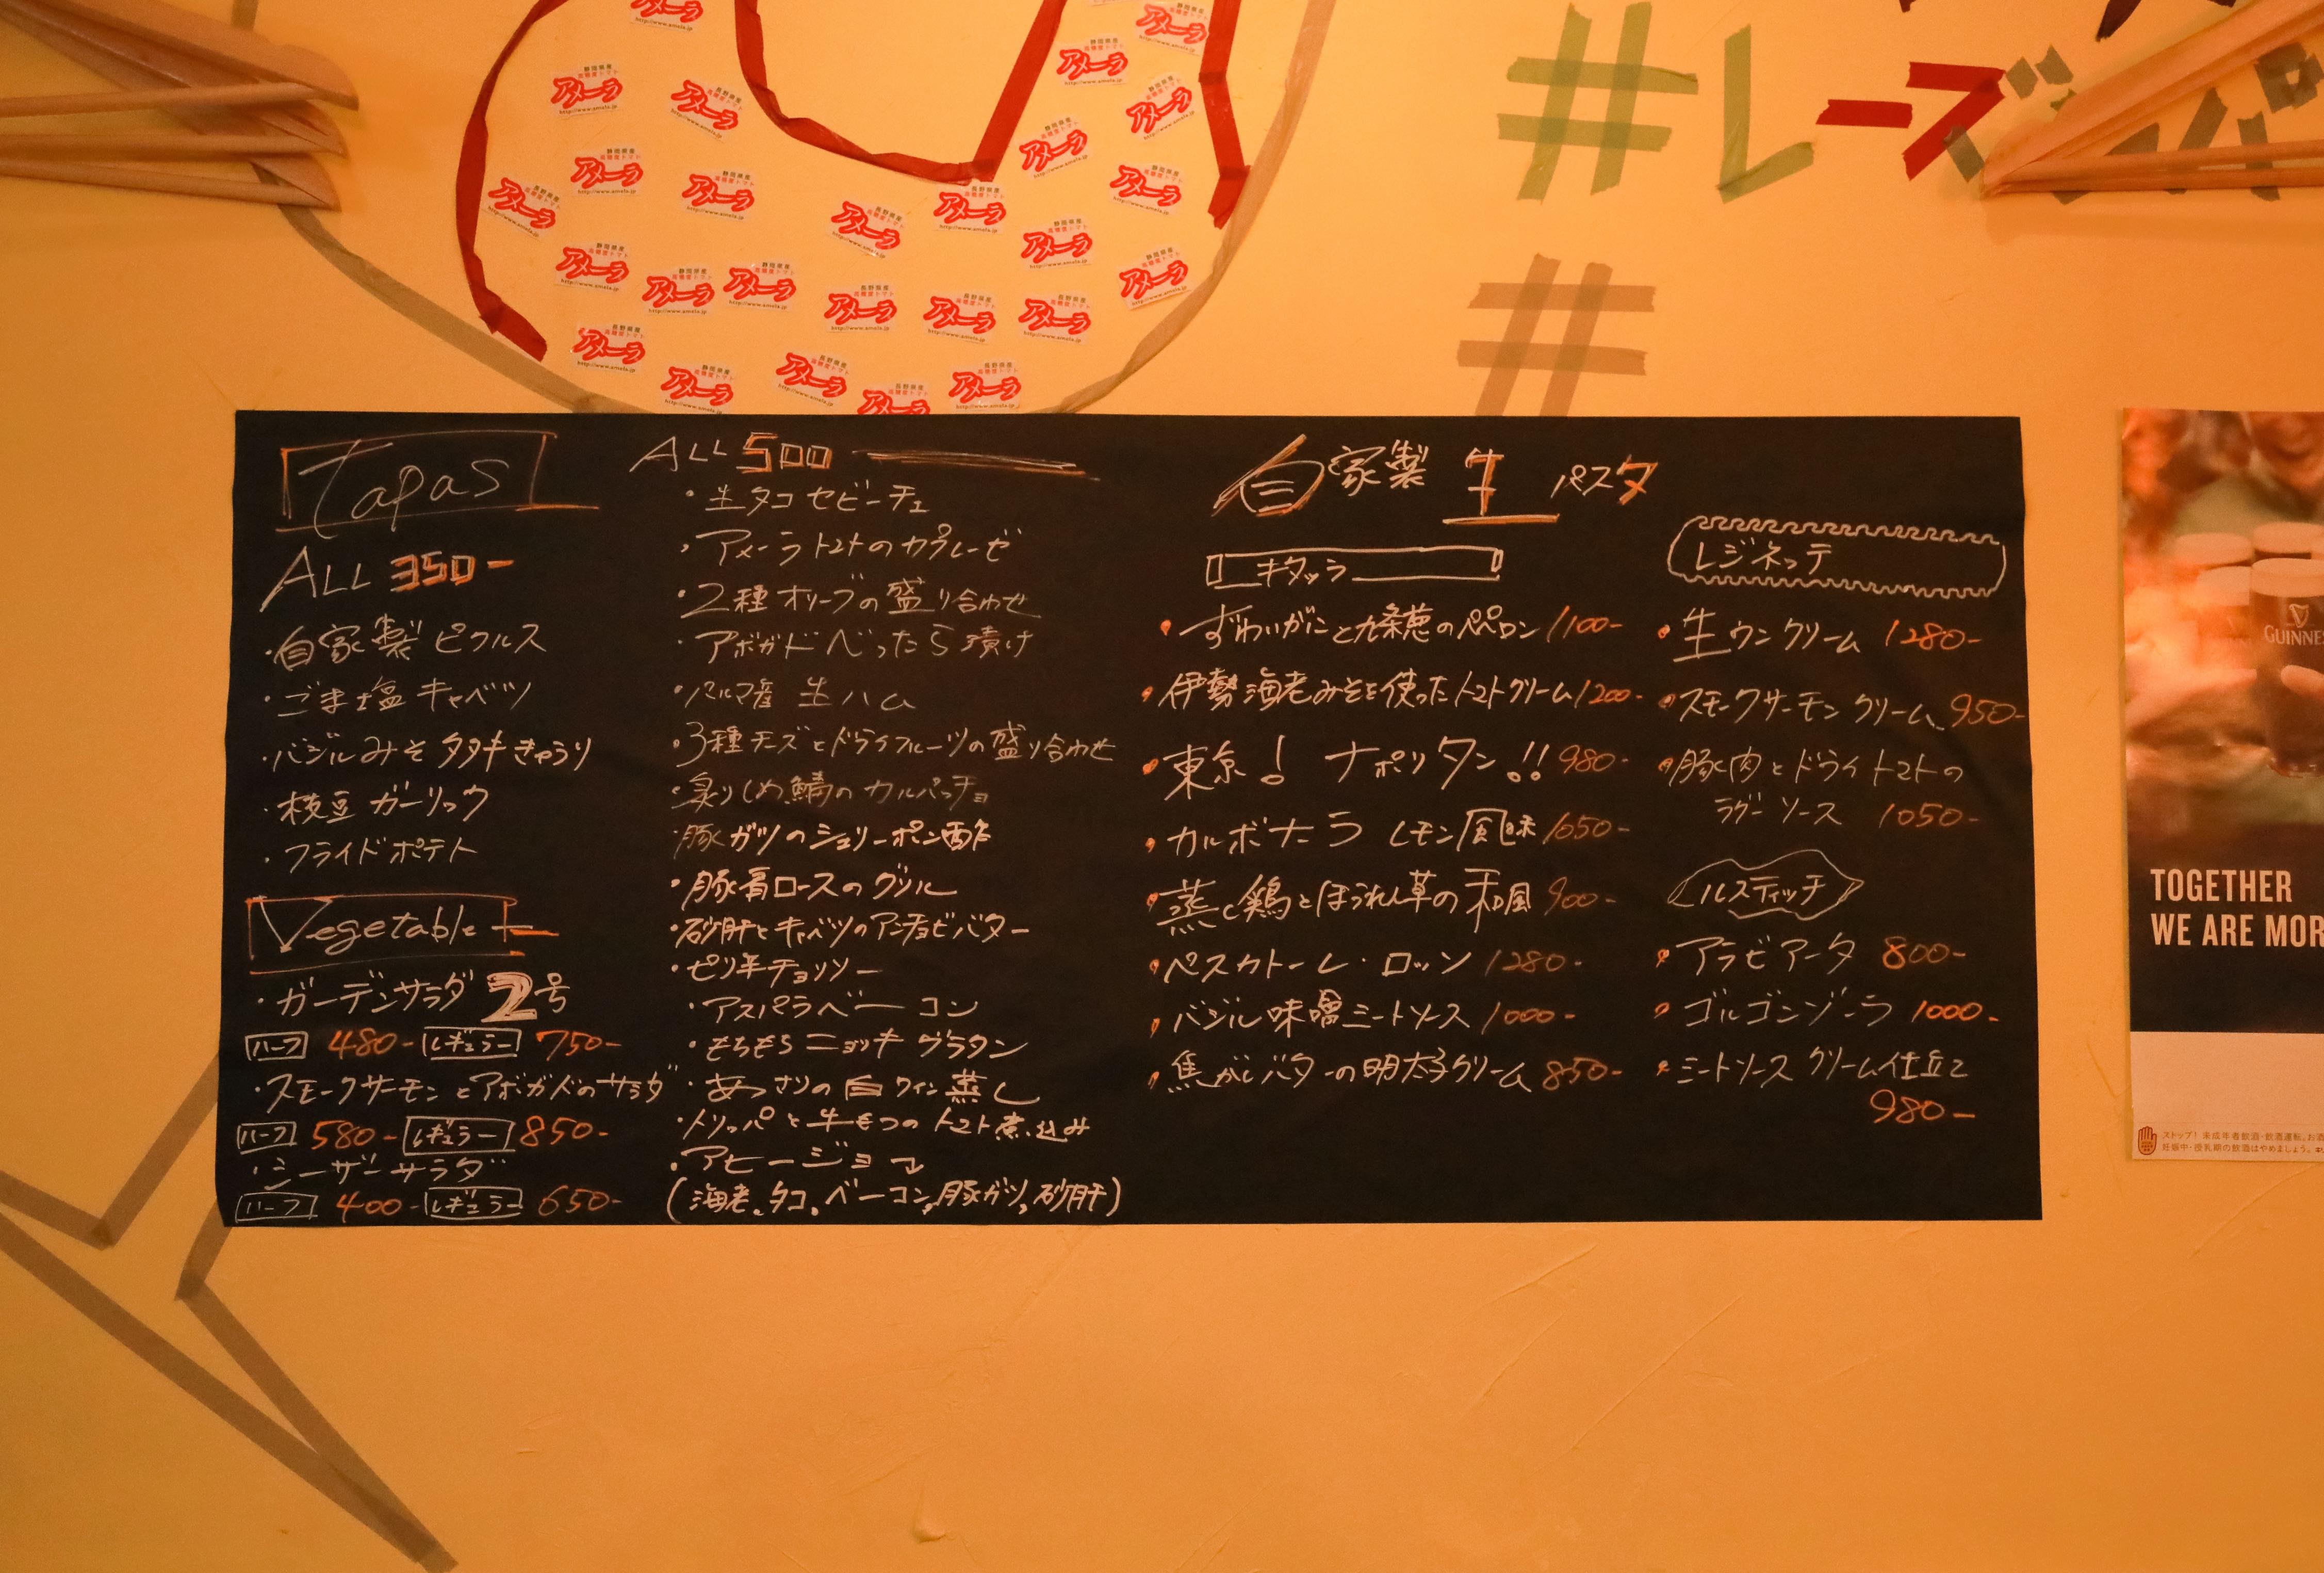 アメーラ
#レーズ
#
Tapas
ALL 350-
・自家製ピクルス
・ごま塩キャベツ
・バジルみそタタキきゅうり
・枝豆ガーリック
・フライドポテト
Vegetable
・ガーデンサラダ 2号
ハーフ 480- レギュラー 750-
・スモークサーモンとアボガドのサラダ
ハーフ 580- レギュラー 850-
・シーザーサラダ
ハーフ 400- レギュラー 650-
ALL 500
・生タコセビーチェ
・アメーラトマトのカプレーゼ
・2種オリーブの盛り合わせ
・アボガドべったら漬け
・パルマ産 生ハム
・3種チーズとドライフルーツの盛り合わせ
・炙りしめ鯖のカルパッチョ
・豚ガツのシェリーポン酢
・豚肩ロースのグリル
・砂肝とキャベツのアンチョビバター
・ピリ辛チョリソー
・アスパラベーコン
・もちもちニョッキグラタン
・あっさりの白ワイン蒸し
・トリッパと牛もつのトマト煮込み
・アヒージョ
(海老、タコ、ベーコン、豚ガツ、砂肝)
自家製 生 パスタ
キタッラ
・ずわいがにと九条葱のペペロン 1100-
・伊勢海老みそを使ったトマトクリーム 1200-
・東京! ナポリタン!! 980-
・カルボナーラ レモン風味 1050-
・蒸し鶏とほうれん草の和風 900-
・ペスカトーレ・ロッソ 1280-
・バジル味噌ミートソース 1000-
・焦がしバターの明太子クリーム 850-
レジネッテ
・生ウニクリーム 1280-
・スモークサーモンクリーム 950-
・豚肉とドライトマトの
ラグーソース 1050-
ルスティッチ
・アラビアータ 800-
・ゴルゴンゾーラ 1000-
・ミートソースクリーム仕立て
980-
GUINNE
TOGETHER
WE ARE MOR
ストップ! 未成年者飲酒・飲酒運転。お酒
妊娠中・授乳期の飲酒はやめましょう。